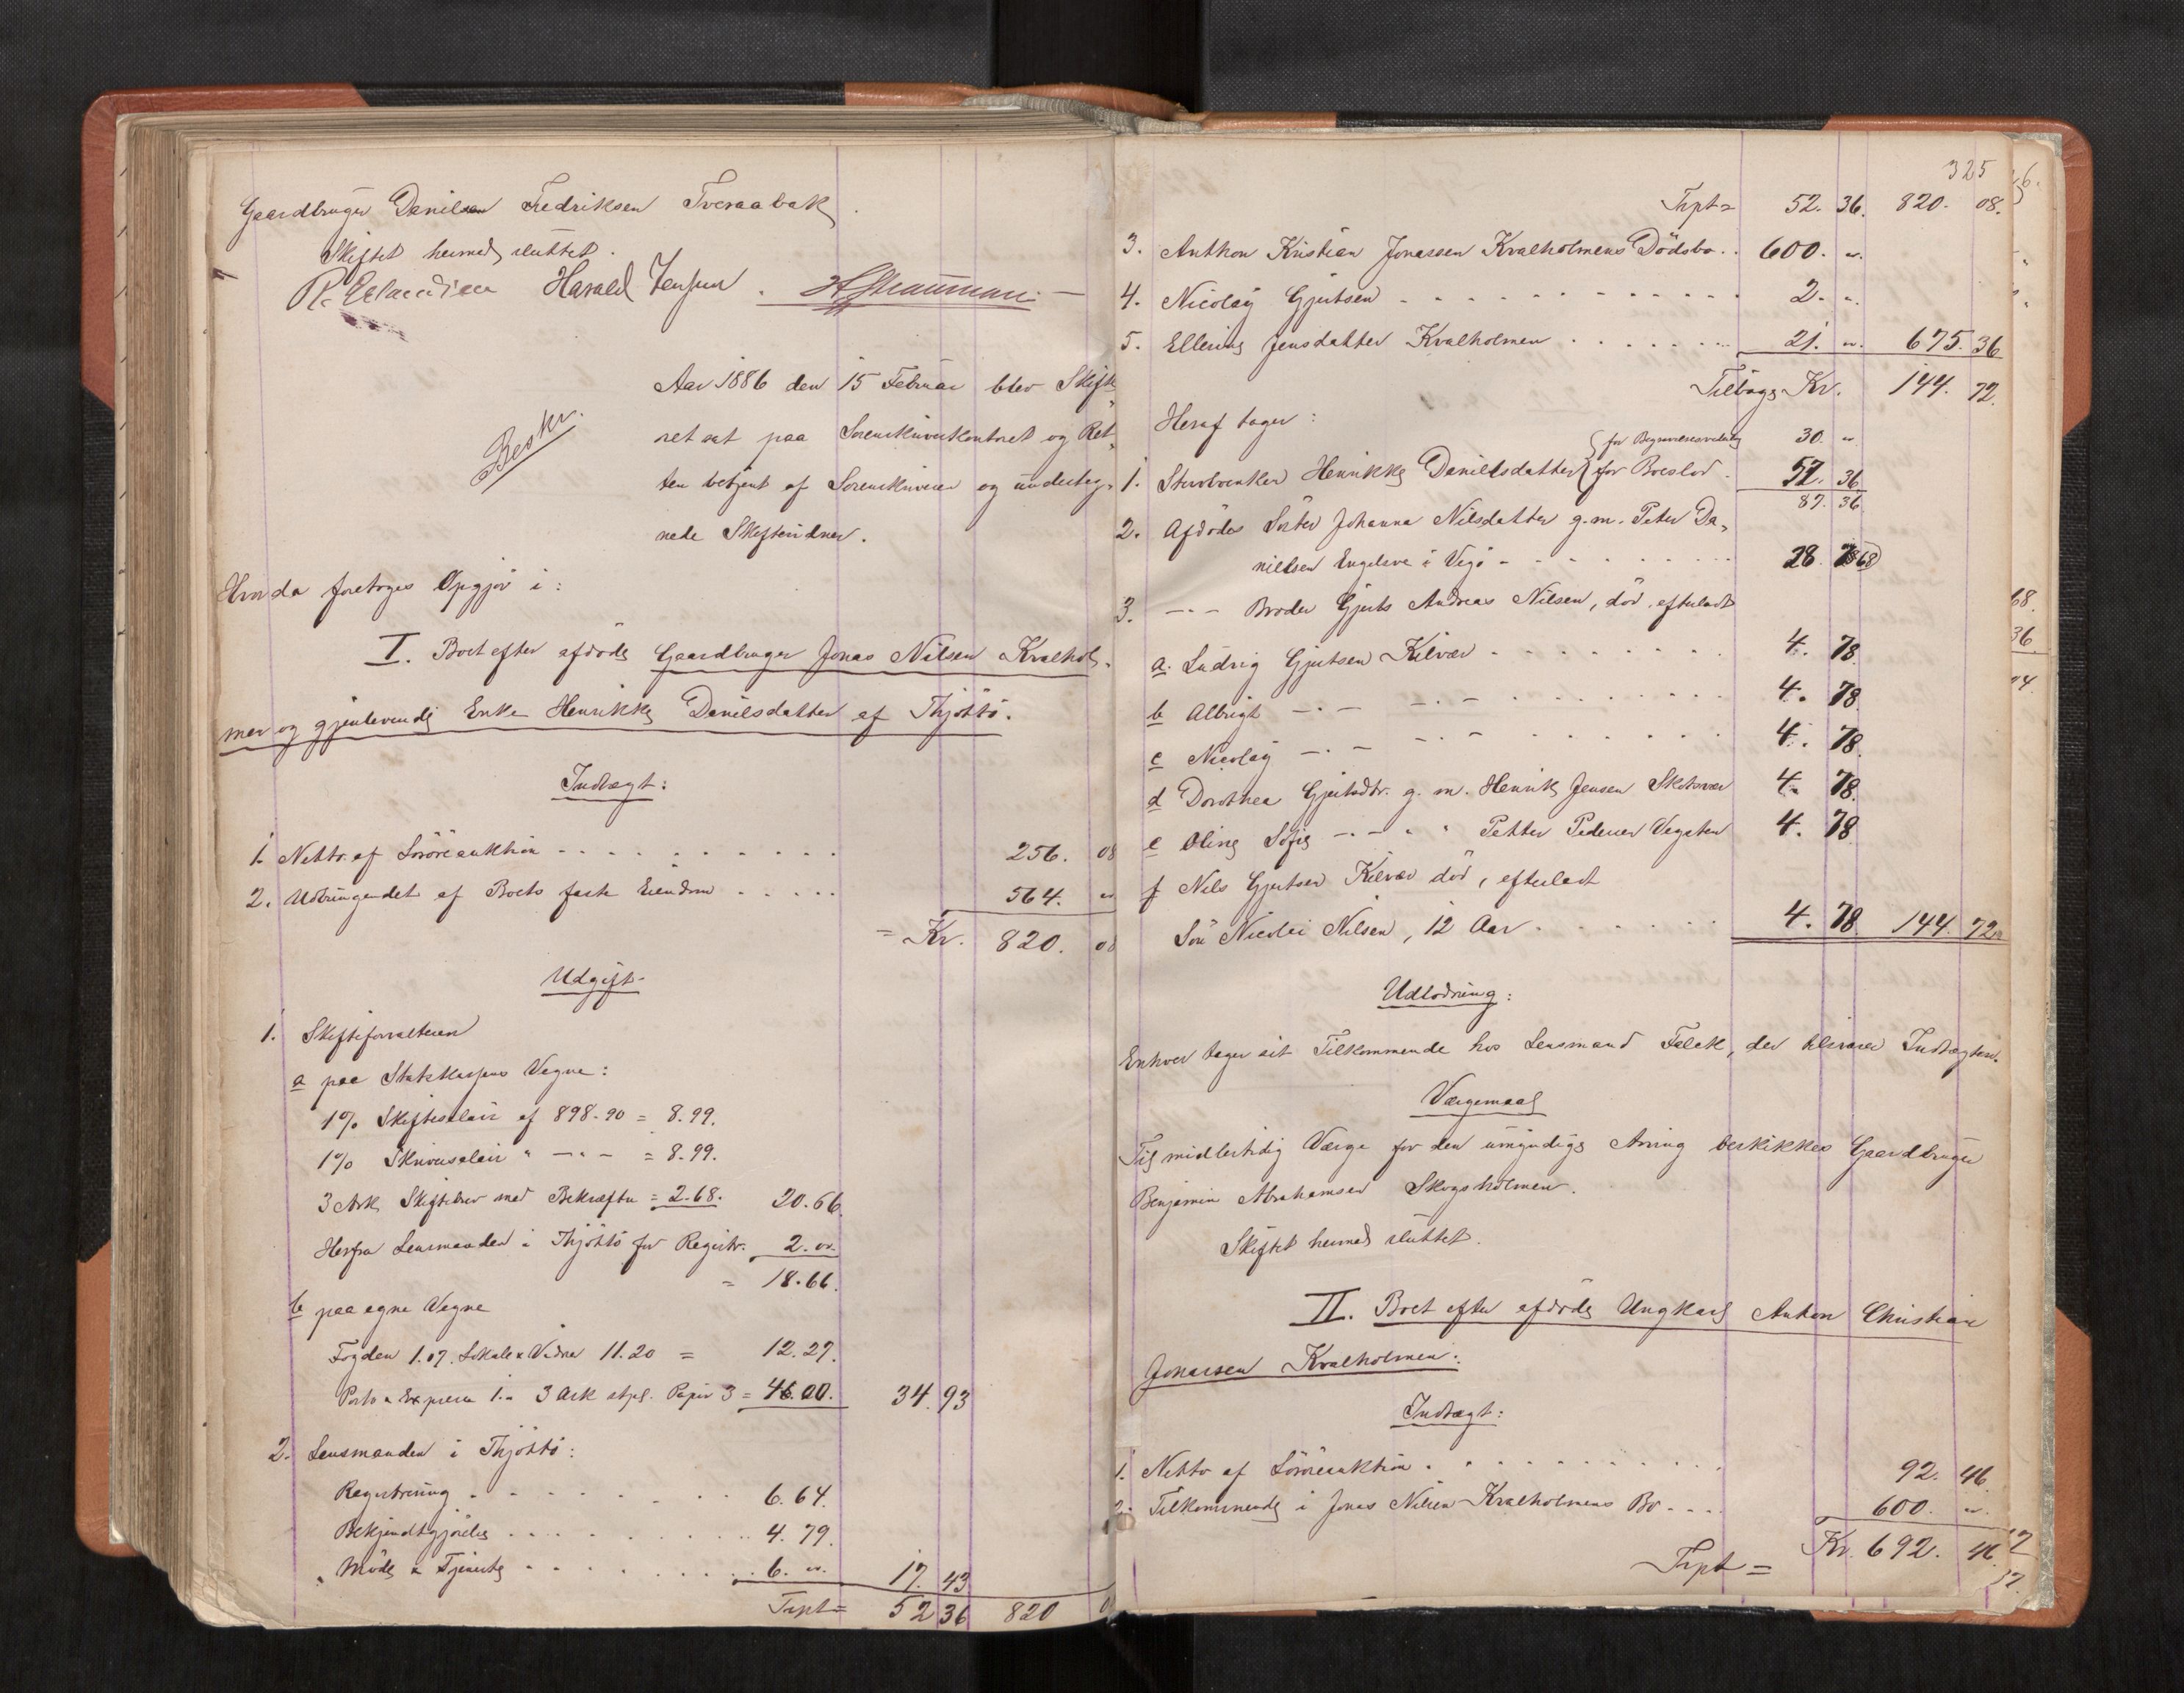 Gaardbruger Danilsen Fredriksen Tveraabak.
Skiftet hermed sluttet.
Harald Jensen.
Aar 1886 den 15 Februar blev Skifte-
ret sat paa Sorenskriverkontoret og Ret-
Beskr.
ten betjent af Sorenskriveren og underteg-
nede Skiftevidner.
Hvorda foretoges Opgjör i:
I. Boet efter afdöde Gaardbruger Jonas Nilsen Kvalhol-
men og gjenlevende Enke Henrikke Danielsdatter af Thjöttö.
Indtægt:
1. Netto af Lösöreauktion 256. 08
2. Udbringendet af Boets faste Eiendom 564. "
= Kr. 820. 08
Udgift.
1. Skifteforvalteren
a paa Statskassens Vegne:
1% Skiftesalair af 898.90 = 8.99.
1% Skriversalair " -"- = 8.99.
3 Ark Skiftebrev med Bekræftn = 2.68. 20.66.
Herfra Lensmanden i Thjöttö for Registr. 2. "
= 18.66.
b paa egne Vegne
Fogden 1.07. Lokale & Vidner 11.20 = 12.27.
Porto & Expresse 1.- 3 Ark stpl. Papir 3 = 4.00. 34.93
2. Lensmanden i Thjöttö:
Registrering 6.64.
Bekjendtgjörelse 4.79.
Möde & Tjeneste 6. " 17.43
Trpt = 52 36 820 0
325
Trpt = 52. 36. 820. 08.
3. Anthon Kristian Jonassen Kvalholmens Dödsbo 600. "
4. Nicolay Gjertsen 2. "
5. Ellerine Jensdatter Kvalholmen 21. " 675. 36
Tilbage Kr. 144. 72.
Heraf tager:
for Begravelsesudlæg 30. "
1. Stervboenken Henrikke Danielsdatter for Boeslod 57. 36
87. 36
2. Afdödes Söster Johanna Nilsdatter g.m. Peter Da-
nielsen i Vegö 28. 68
3. -"- Broder Gjerts Andreas Nilsen, död, efterladt
a. Ludvig Gjertsen Kilvær 4. 78.
b Albrigt -"- -"- 4. 78.
c Nicolay -"- -"- 4. 78.
d Dorothea Gjertsdtr. g. m. Henrik Jensen Skotsvær 4. 78.
e Oline Sofie -"- " " Petter Pedersen Vegsten 4. 78
f Nils Gjertsen Kilvær död, efterladt
Sön Nicolai Nilsen, 12 Aar 4. 78 144. 72
Udlodning:
Enhver tager sit Tilkommende hos Lensmand Falck, der tilsvarer Indtægten.
Værgemaal
Til midlertidig Værge for den umyndige Arving beskikkes Gaardbruger
Benjamin Abrahamsen Skogsholmen.
Skiftet hermed sluttet.
II. Boet efter afdöde Ungkarl Anton Christian
Jonassen Kvalholmen:
Indtægt:
1. Netto af Lösöreauktion 92. 46
2. Tilkommende i Jonas Nilsen Kvalholmens Bo 600. "
Trpt = Kr. 692. 46.